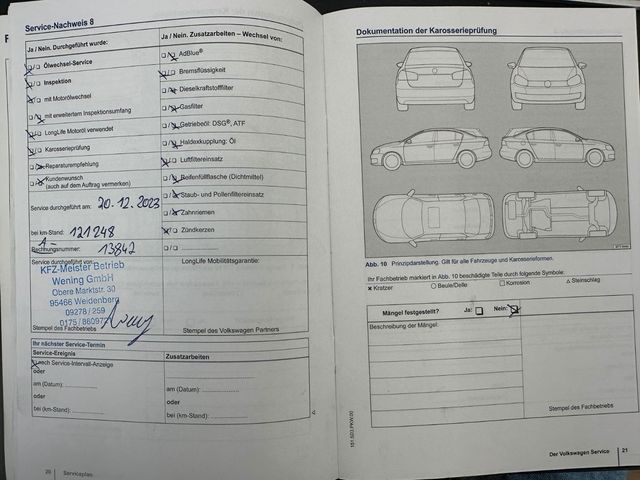 Service-Nachweis 8
Ja / Nein. Durchgeführt wurde:
Ölwechsel-Service
Inspektion
mit Motorölwechsel
mit erweitertem Inspektionsumfang
LongLife Motoröl verwendet
Karosserieprüfung
Reparaturempfehlung
Kundenwunsch
(auch auf dem Auftrag vermerken)
Service durchgeführt am: 20.12.2023
bei km-Stand: 121248
Rechnungsnummer: 13842
Service durchgeführt von:
KFZ-Meister Betrieb
Wening GmbH
Obere Marktstr. 30
95466 Weidenberg
09278 / 259
Stempel des Fachbetriebs
Ja / Nein. Zusatzarbeiten – Wechsel von:
AdBlue®
Bremsflüssigkeit
Dieselkraftstofffilter
Gasfilter
Getriebeöl: DSG®, ATF
Haldexkupplung: Öl
Luftfiltereinsatz
Reifenfüllflasche (Dichtmittel)
Staub- und Pollenfiltereinsatz
Zahnriemen
Zündkerzen
LongLife Mobilitätsgarantie:
Stempel des Volkswagen Partners
Ihr nächster Service-Termin
Service-Ereignis
nach Service-Intervall-Anzeige
oder
am (Datum):
oder
bei (km-Stand):
Zusatzarbeiten
am (Datum):
oder
bei (km-Stand):
20 Serviceplan
Dokumentation der Karosserieprüfung
Abb. 10 Prinzipdarstellung. Gilt für alle Fahrzeuge und Karosserieformen.
Ihr Fachbetrieb markiert in Abb. 10 beschädigte Teile durch folgende Symbole:
× Kratzer ○ Beule/Delle □ Korrosion △ Steinschlag
Mängel festgestellt? Ja: Nein:
Beschreibung der Mängel:
Stempel des Fachbetriebs
Der Volkswagen Service 21